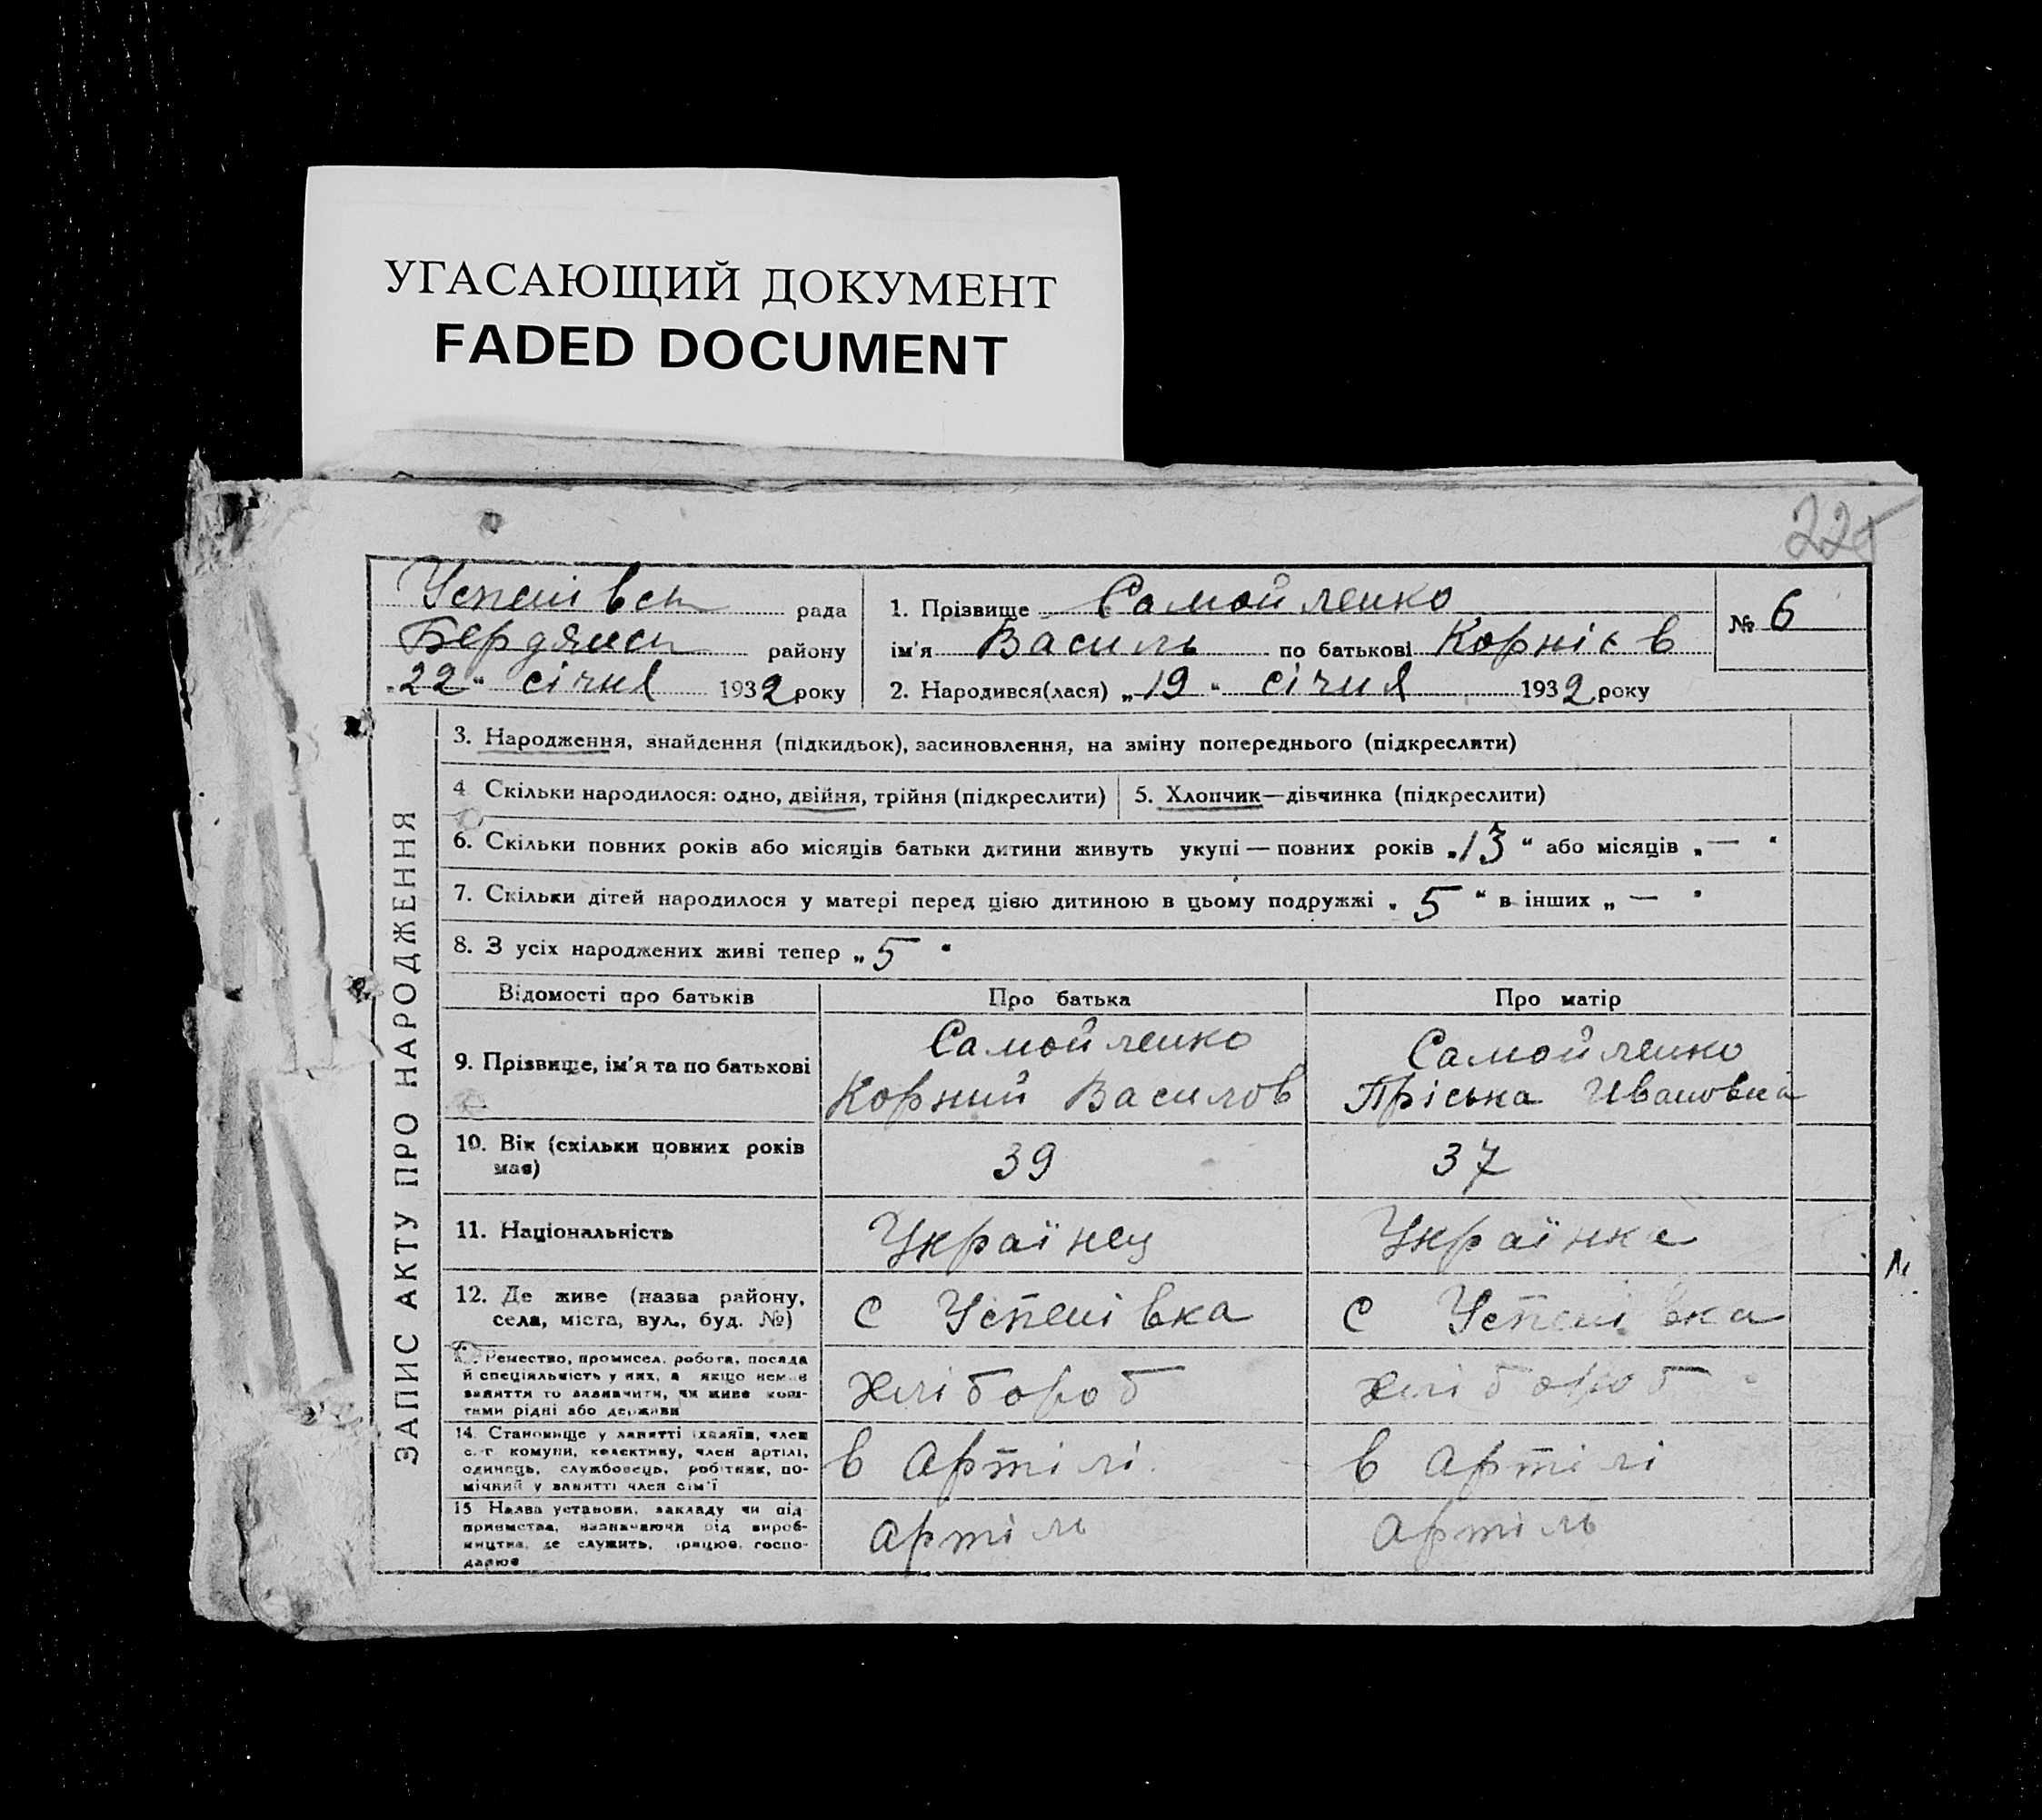 УГАСАЮЩИЙ ДОКУМЕНТ
FADED DOCUMENT
225
Успенівсь рада
Бердянсь району
„22“ січня 1932 року
1. Прізвище Самойленко
ім'я Василь по батькові Корнієв
№ 6
2. Народився(лася) „19“ січня 1932 року
ЗАПИС АКТУ ПРО НАРОДЖЕННЯ
3. Народження, знайдення (підкидьок), засиновлення, на зміну попереднього (підкреслити)
4 Скільки народилося: одно, двійня, трійня (підкреслити)
5. Хлопчик—дівчинка (підкреслити)
6. Скільки повних років або місяців батьки дитини живуть укупі — повних років „13“ або місяців „—“
7. Скільки дітей народилося у матері перед цією дитиною в цьому подружжі „5“ в інших „—“
8. З усіх народжених живі тепер „5“
Відомості про батьків Про батька Про матір
9. Прізвище, ім'я та по батькові
Самойленко
Корний Василов
Самойленко
Пріська Ивановна
10. Вік (скільки повних років
має)
39
37
11. Національність
Українец
Українка
12. Де живе (назва району,
села, міста, вул., буд. №)
с Успенівка
с Успенівка
Ремество, промисел, робота, посада
й спеціяльність у них, а якщо немає
заняття то зазначити, чи живе кош-
тами рідні або держави
хлібороб
хлібороб
14. Становище у занятті (хазяїн, член
с.-г. комуни, колективу, член артілі,
одинець, службовець, робітник, по-
мічний у занятті член сім'ї
в артілі
в артілі
15 Назва установи, закладу чи під-
приємства, зазначаючи рід вироб-
ництва, де служить, працює, госпо-
дарює
артіль
артіль